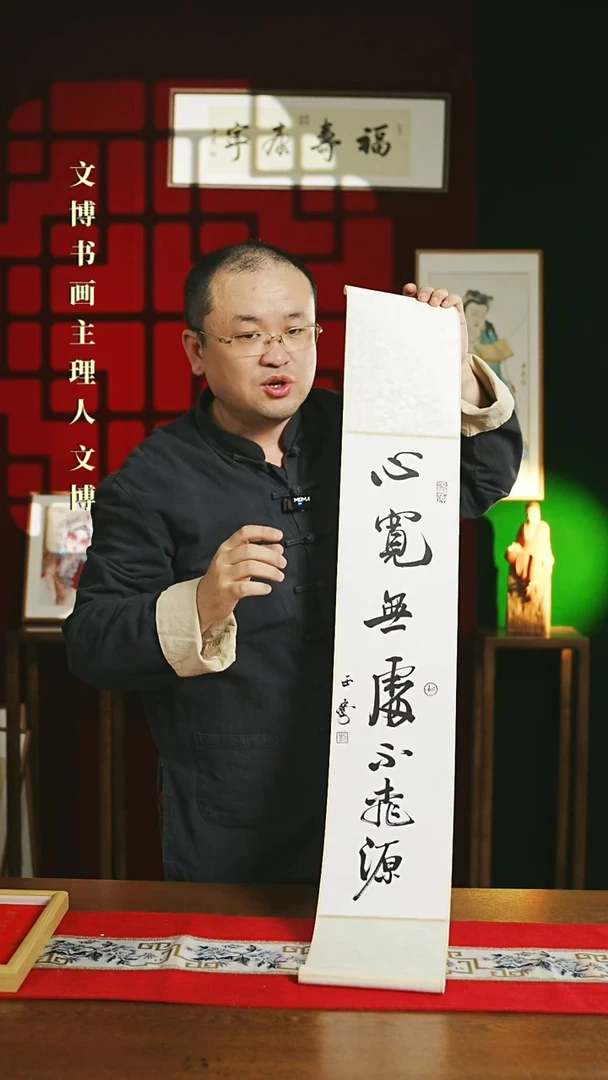 福壽康宁
文博书画主理人 文博
心寬無處不桃源
MOMA